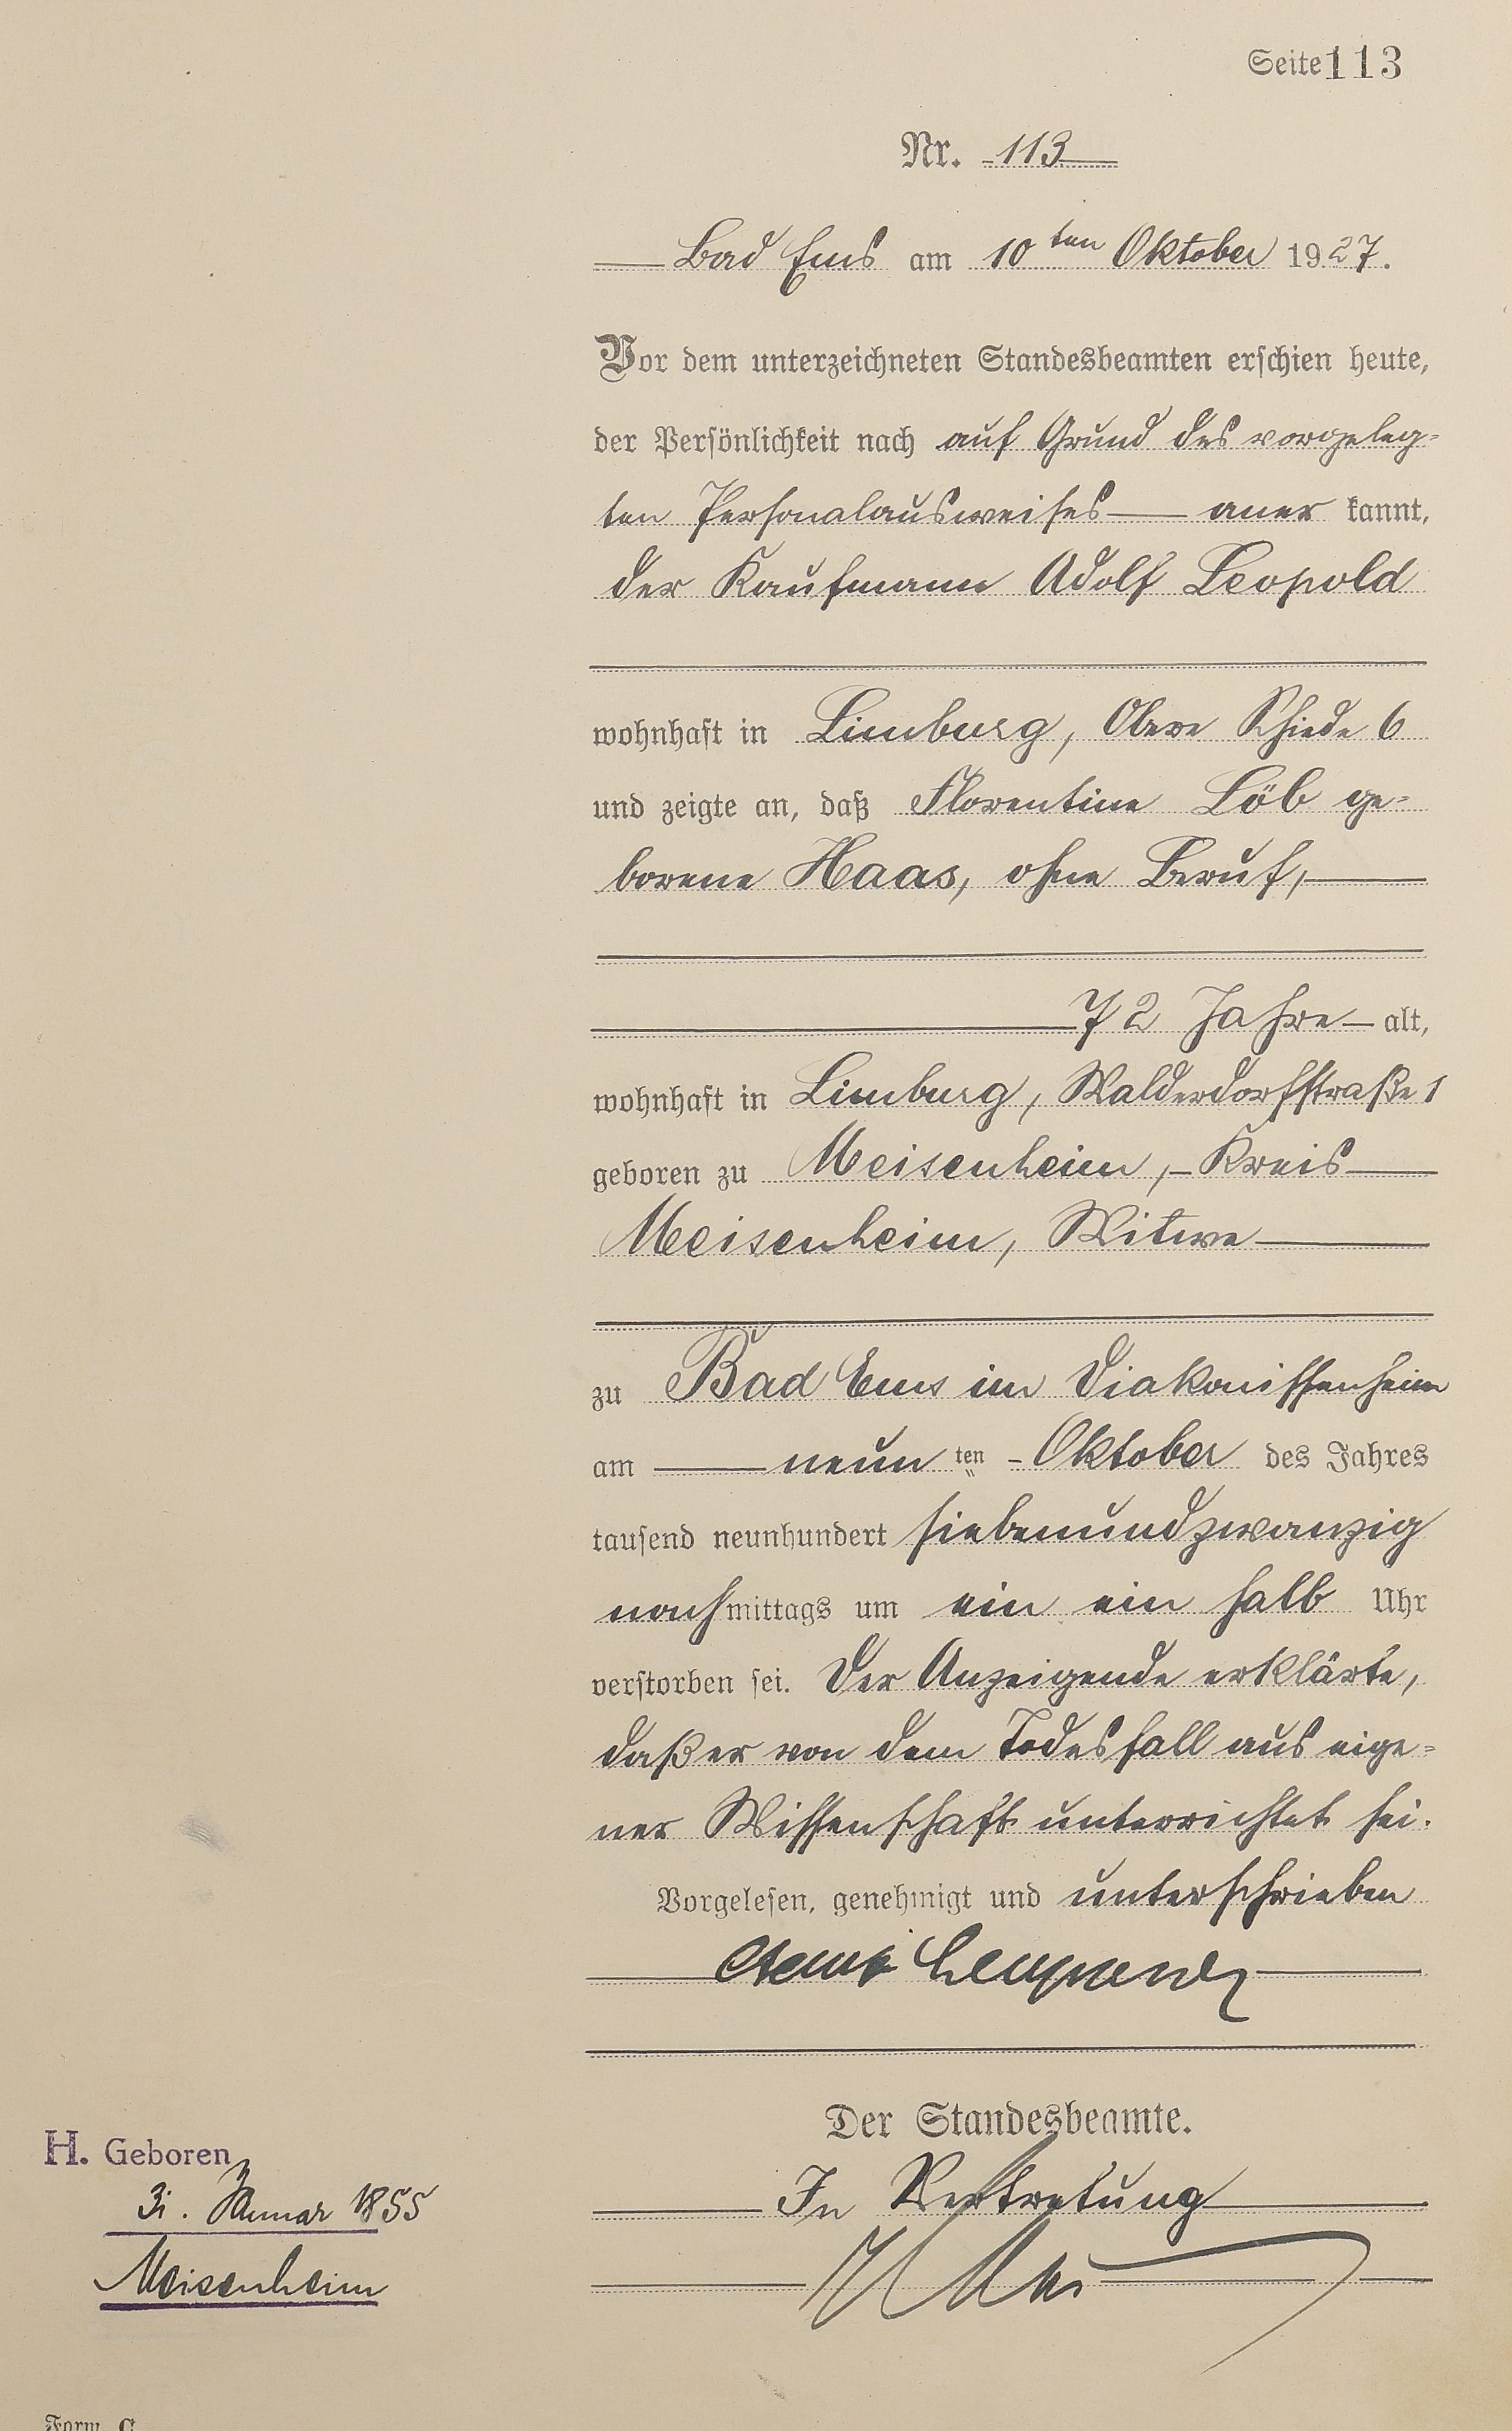 Seite 113
Nr. 113
Bad Ems am 10ten Oktober 1927.
Vor dem unterzeichneten Standesbeamten erschien heute,
der Persönlichkeit nach auf Grund des vorgeleg-
ten Personalausweises aner kannt,
der Kaufmann Adolf Leopold
wohnhaft in Limburg, Obere Schiede 6
und zeigte an, daß Florentine Löb ge-
borene Haas, ohne Beruf,
72 Jahre alt,
wohnhaft in Limburg, Walderdorfstraße 1
geboren zu Meisenheim, Kreis
Meisenheim, Witwe
zu Bad Ems im Diakonissenheim
am neun ten Oktober des Jahres
tausend neunhundert siebenundzwanzig
nachmittags um ein ein halb Uhr
verstorben sei. Der Anzeigende erklärte,
daß er von dem Todesfall aus eige-
ner Wissenschaft unterrichtet sei.
Vorgelesen, genehmigt und unterschrieben
Der Standesbeamte.
In Vertretung
H. Geboren
31. Januar 1855
Meisenheim
Form. C